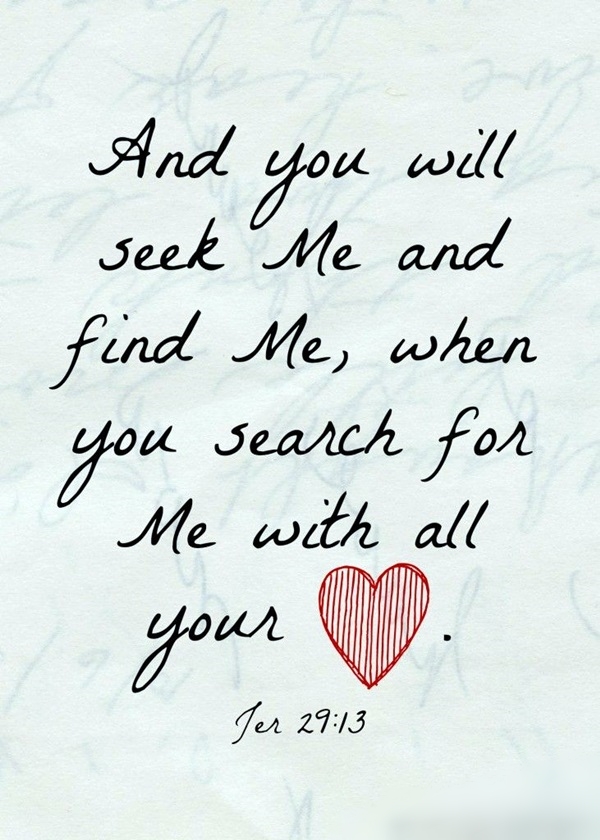 And you will
seek Me and
find Me, when
you search for
Me with all
your .
Jer 29:13